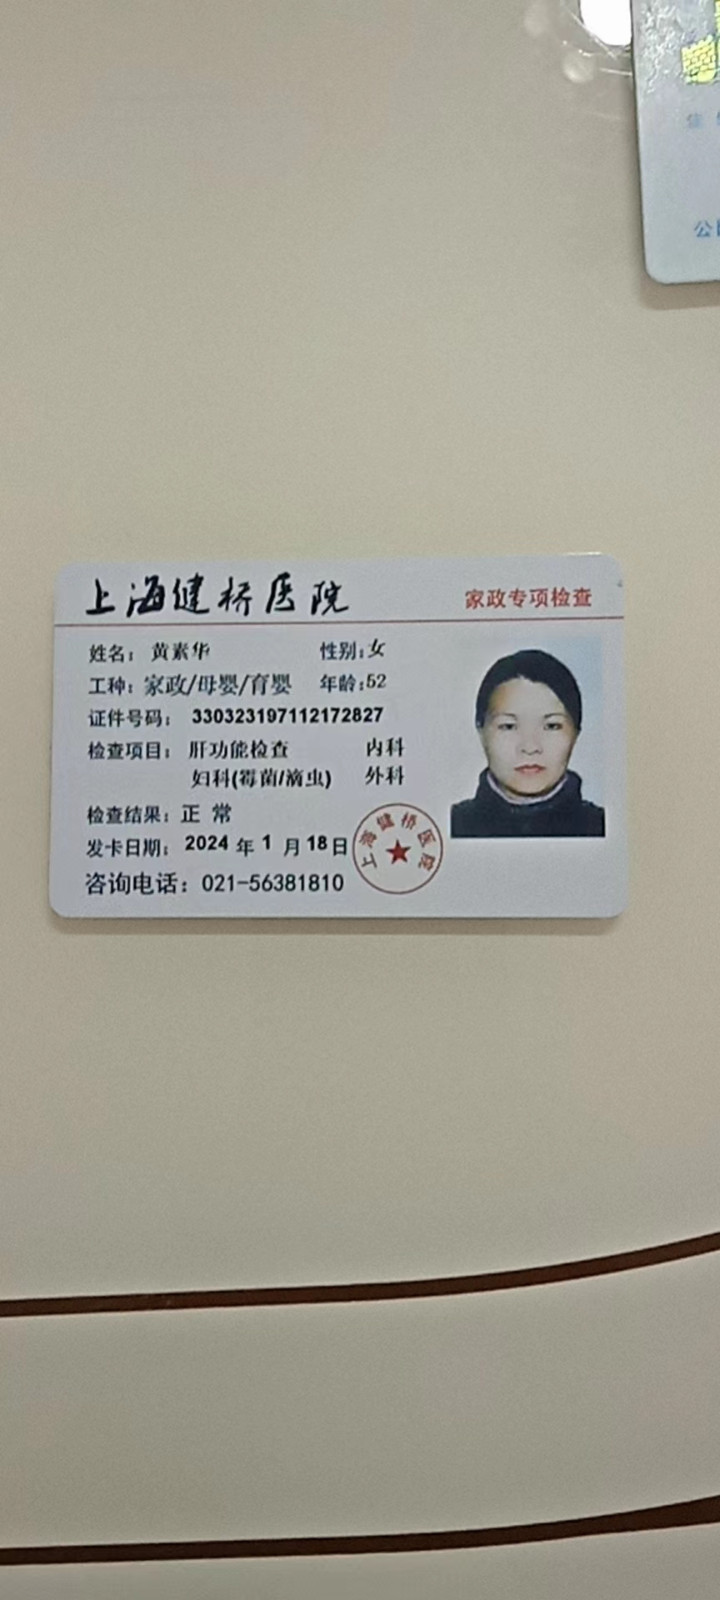 住
公民
上海健桥医院 家政专项检查
姓名：黄素华 性别：女
工种：家政/母婴/育婴 年龄：52
证件号码：330323197112172827
检查项目：肝功能检查 内科
妇科(霉菌/滴虫) 外科
检查结果：正 常
发卡日期：2024 年 1 月 18 日
咨询电话：021-56381810
上海健桥医院